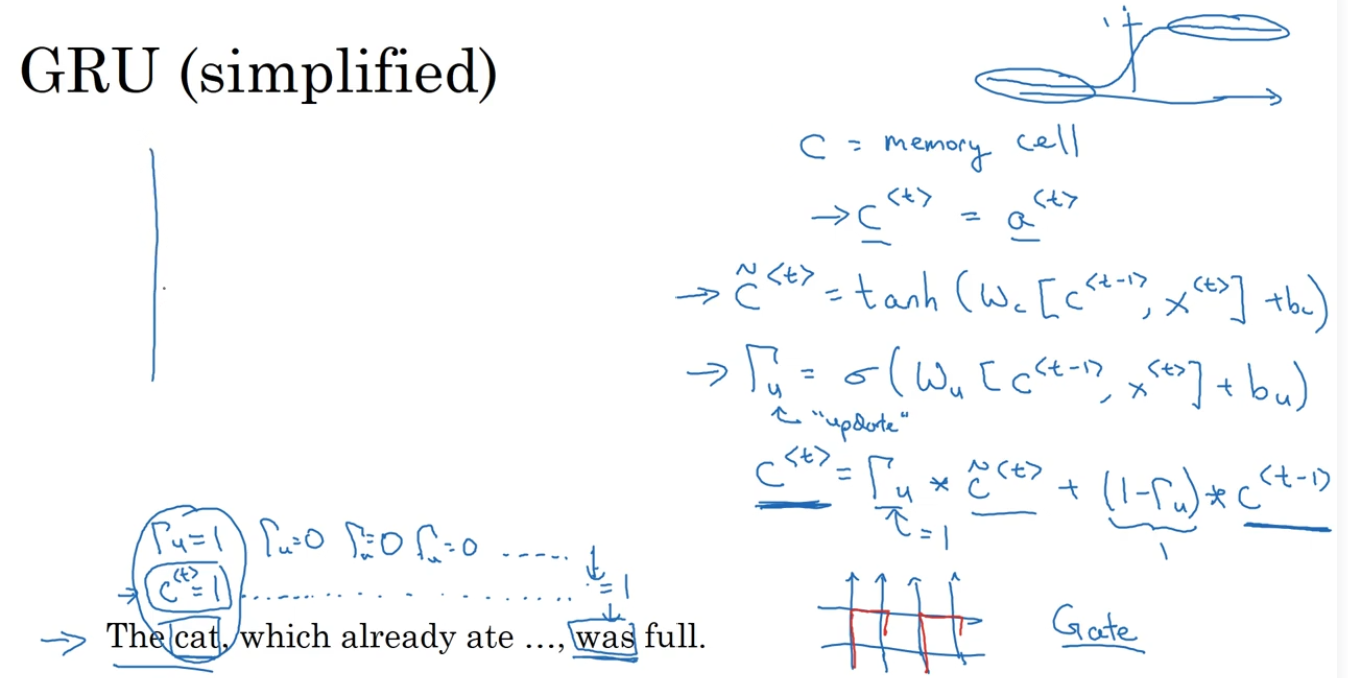 GRU (simplified)
1
C = memory cell
→ C^{<t>} = a^{<t>}
→ C̃^{<t>} = tanh (W_c [C^{<t-1>}, x^{<t>}] + b_c)
→ Γ_u = σ (W_u [C^{<t-1>}, x^{<t>}] + b_u)
↑ "update"
C^{<t>} = Γ_u * C̃^{<t>} + (1-Γ_u) * C^{<t-1>}
↑ = 1
1
Γ_u=1 Γ_u=0 Γ_u=0 Γ_u=0 ..... ↓
→ C^{<t>}=1 .................. =1
→ The cat, which already ate ..., was full.
Gate